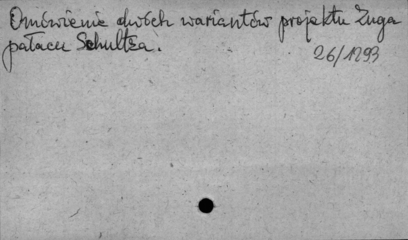 Omówienie dwóch wariantów projektu Zuga
pałacu Schultza.
26/1293